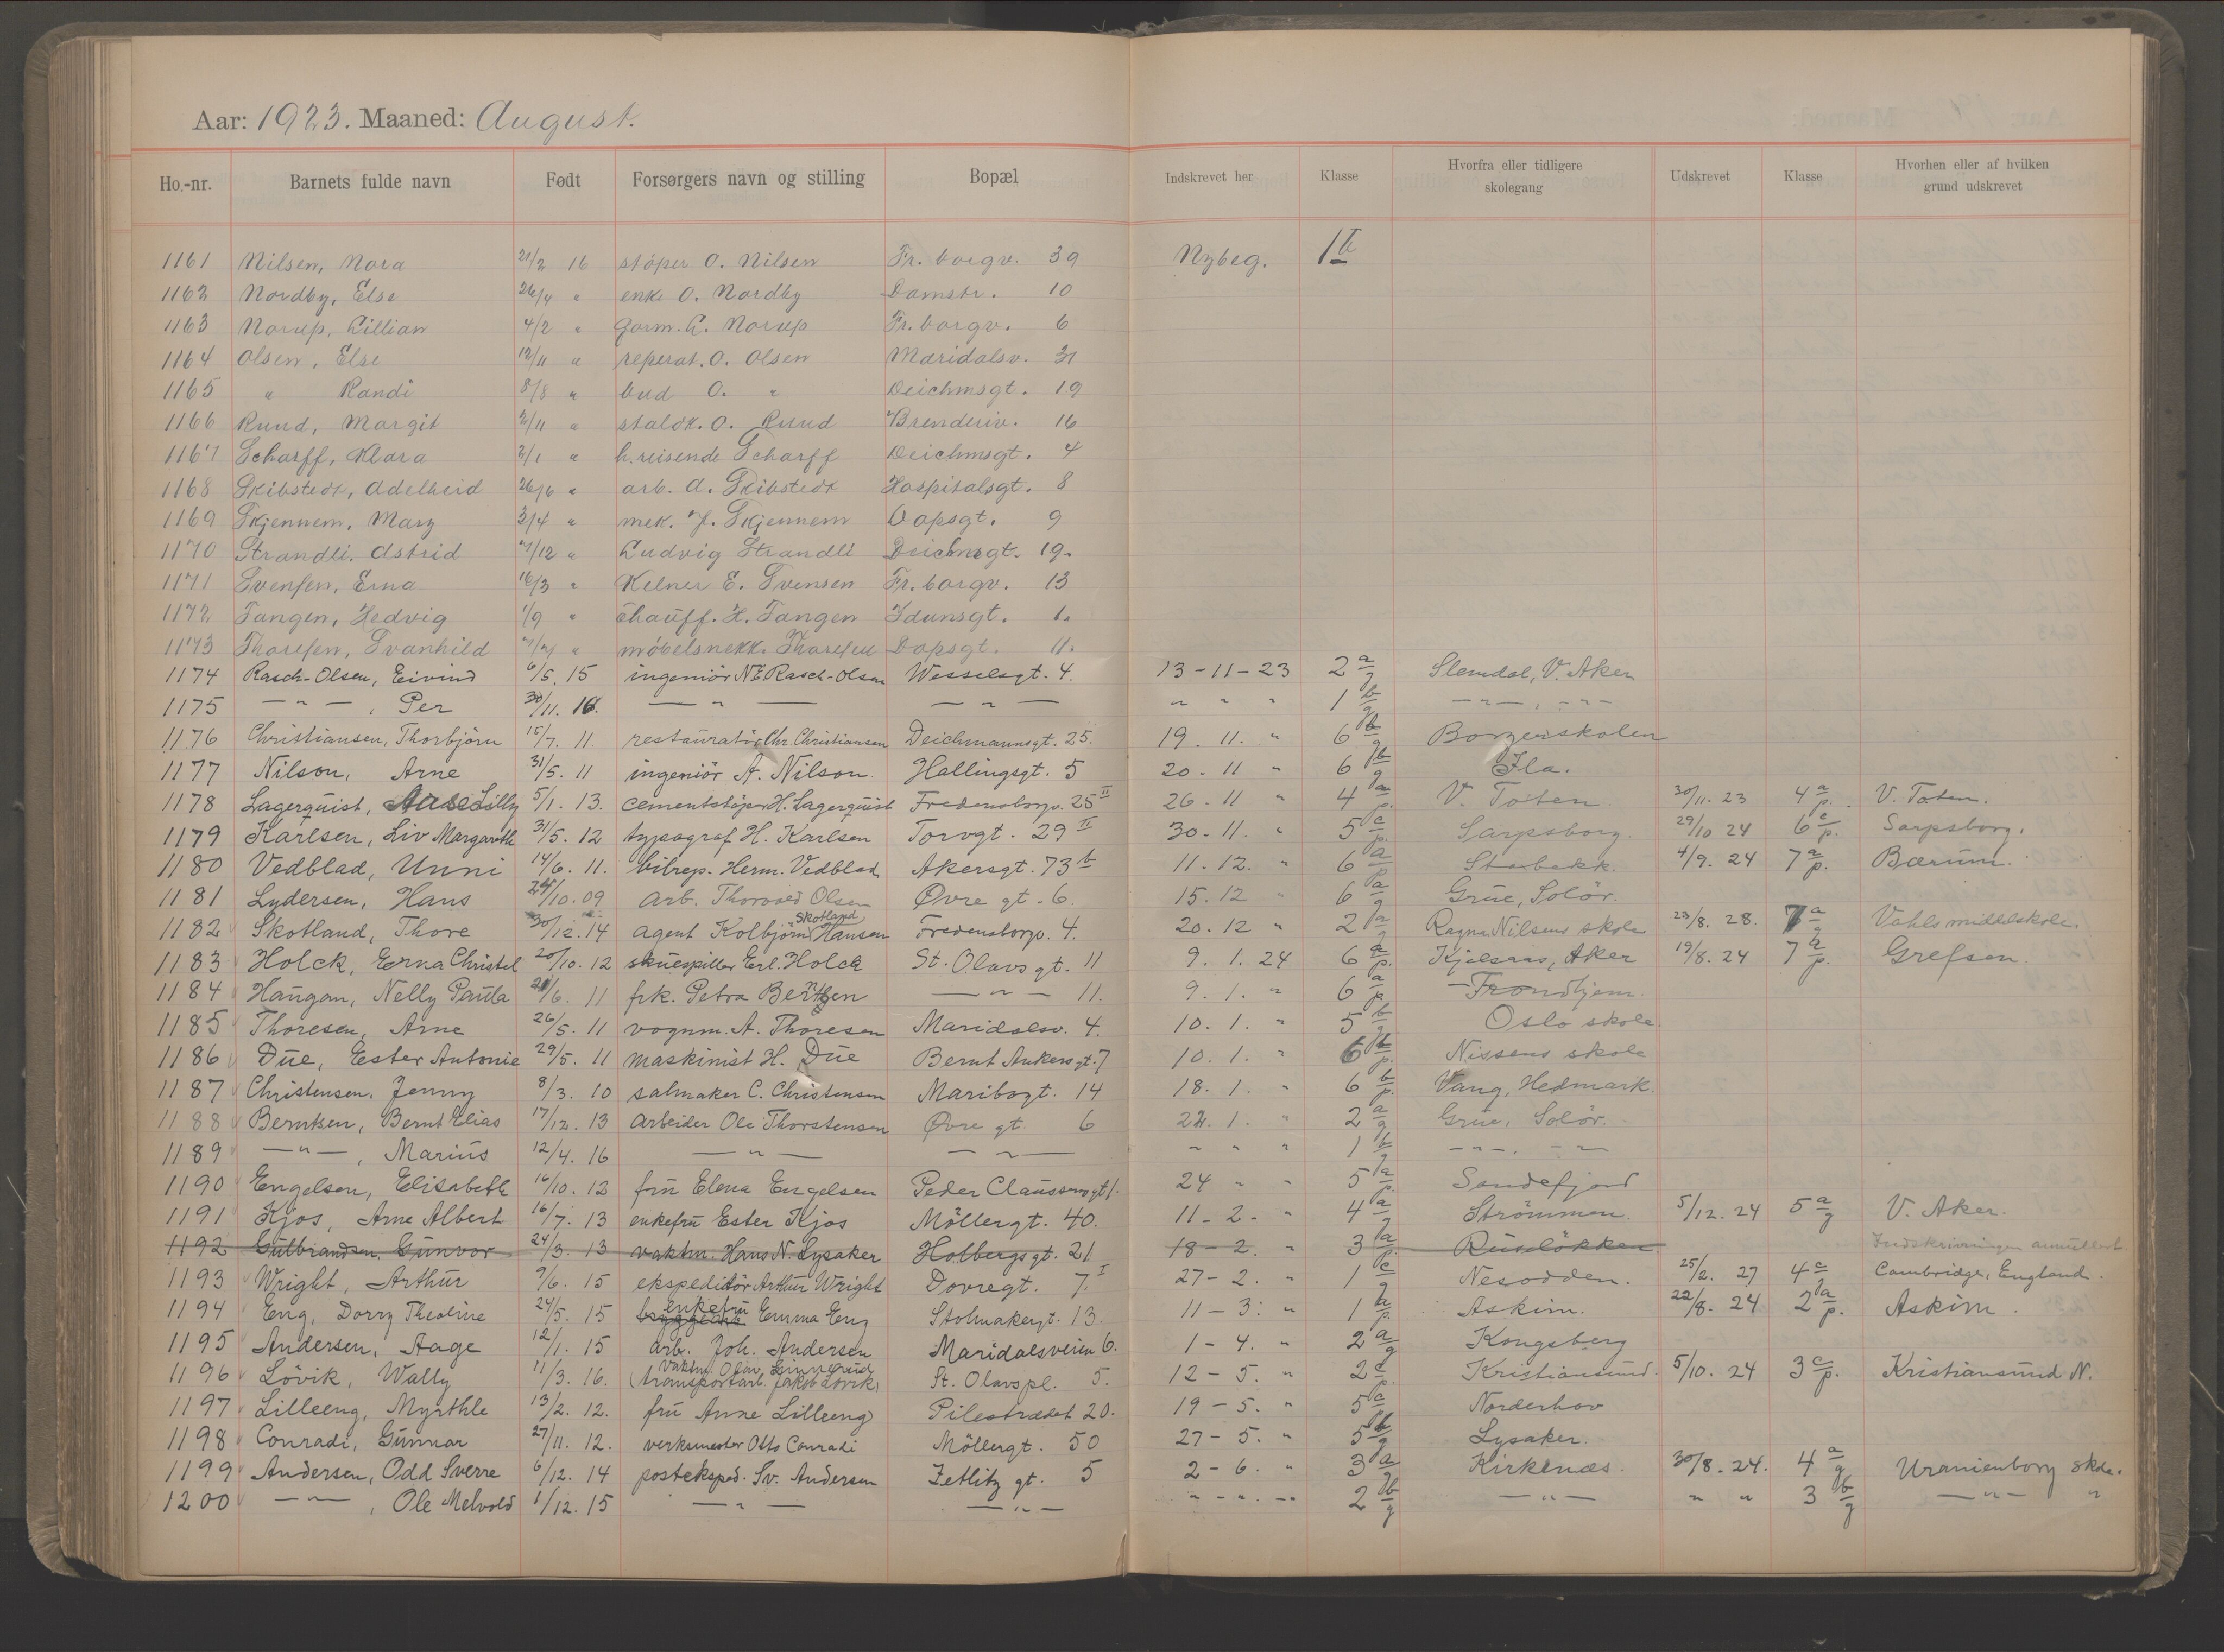 Aar: 1923. Maaned: August.
Ho.-nr. Barnets fulde navn Født Forsørgers navn og stilling Bopæl Indskrevet her Klasse Hvorfra eller tidligere skolegang Udskrevet Klasse Hvorhen eller af hvilken grund udskrevet
1161 Nilsen, Nora 21/2 16 støper O. Nilsen Fr. borgv. 39 Nybeg. 1 b
1162 Nordby, Else 26/4 " enke O. Nordby Damstr. 10
1163 Norup, Lillian 4/2 " gørm. C. Norup Fr. borgv. 6
1164 Olsen, Else 12/11 " reperat. O. Olsen Maridalsv. 31
1165 " Randi 8/8 " bud O. " Deichmsgt. 19
1166 Ruud, Margit 2/11 " staldk. O. Ruud Brenderiv. 16
1167 Scharff, Klara 2/1 " h.reisende Scharff Deichmsgt. 4
1168 Skibstedt, Adelheid 26/6 " arb. A. Skibstedt Hospitalsgt. 8
1169 Skjennem, Mary 3/4 " mek. J. Skjennem Dopsgt. 9
1170 Strandli, Astrid /12 " Ludvig Strandli Deichmsgt. 19.
1171 Svensen, Erna 16/3 " Kelner E. Svensen Fr. borgv. 13
1172 Tangen, Hedvig 1/9 " chauff. H. Tangen Idunsgt. 1.
1173 Thoresen, Svanhild " møbelsnekk. Thoresen Dopsgt. 11.
1174 Rasch-Olsen, Eivind 6/5. 15 ingeniör N.E. Rasch-Olsen Wesselsgt. 4. 13-11-23 2 a/g Slemdal, V. Aker
1175 — " — , Per 30/11. 16. — " — — " — " " " 1 b/g — " — , - " -
1176 Christiansen, Thorbjörn 15/7. 11. restauratör Chr. Christiansen Deichmannsgt. 25. 19. 11. " 6 b/g Borgerskolen
1177 Nilson, Arne 31/5. 11 ingeniör A. Nilson. Hallingsgt. 5 20. 11 " 6 b/g Ila.
1178 Lagerquist, Lilly 5/1. 13. cementstöper H. Lagerquist Fredensborgv. 25 II 26. 11 " 4 a/p. V. Toten. 30/11. 23 4 a/p. V. Toten.
1179 Karlsen, Liv Margarethe 31/5. 12 typograf H. Karlsen Torvgt. 29 II 30. 11. " 5 c/p. Sarpsborg. 29/10 24 6 c/p. Sarpsborg.
1180 Vedblad, Unni 14/6. 11. bilrep. Herm. Vedblad Akersgt. 73 b 11. 12. " 6 a/p Stabekk. 4/9. 24 7 a/p. Bærum.
1181 Lydersen, Hans 24/10. 09 Arb. Thorvald Olsen Øvre gt. 6. 15. 12 " 6 a/g Grue, Solör.
1182 Skotland, Thore 30/12. 14 agent Kolbjörn Hansen Skotland Fredensborgv. 4. 20. 12 " 2 a/g Ragna Nilsens skole 23/8. 28. 7 a/g Vahls middelskole.
1183 Holck, Erna Christel 20/10. 12 skuespiller Erl. Holck St. Olavs gt. 11 9. 1. 24 6 a/p. Kjelsaas, Aker 19/8. 24 7 b/p. Grefsen.
1184 Haugan, Nelly Paula 21/6. 11 frk. Petra Berntzen — " — 11. 9. 1. " 6 a/p Trondhjem.
1185 Thoresen, Arne 26/5. 11 vognm. A. Thoresen Maridalsv. 4. 10. 1. " 5 b/g Oslo skole.
1186 Due, Ester Antonie 29/5. 11 maskinist H. Due Bernt Ankers gt. 7 10. 1. " 6 b/p. Nissens skole
1187 Christensen, Jenny 8/3. 10 salmaker C. Christensen Maribogt. 14 18. 1. " 6 b/p. Vang, Hedmark.
1188 Berntsen, Bernt Elias 17/12. 13 Arbeider Ole Thorstensen Øvre gt. 6 22. 1. " 2 a/g Grue, Solör.
1189 — " — , Marius 12/4. 16 — " — — " — " " " 1 b/g — " — . - " -
1190 Engelsen, Elisabeth 16/10. 12 fru Elena Engelsen Peder Claussøns gt 1. 24 " " 5 a/p. Sandefjord
1191 Kjos, Arne Albert 16/7. 13 enkefru Ester Kjos Möllergt. 40. 11-2- " 4 a/g Strömmen. 5/12. 24 5 a/g V. Aker.
1192 Gulbrandsen, Gunvor 24/3. 13 vaktm. Hans N. Lysaker Holbergs gt. 21 18-2. " 3 a/p. Ruselökken. Indskrivningen annullert
1193 Wright, Arthur 9/6. 15 ekspeditör Arthur Wright Dovregt. 7. I 27-2. " 1 c/g Nesodden. 25/2. 27 4 c/g Cambridge, England.
1194 Eng, Dorry Theoline 24/5. 15 enkefru Emma Eng Stolmakergt. 13. 11-3. " 1 a/p. Askim. 22/8. 24 2 a/p. Askim.
1195 Andersen, Aage 12/1. 15 arb. Joh. Andersen Maridalsveien 6. 1-4. " 2 a/g Kongsberg
1196 Lövik, Wally 11/3. 16. vaktm. Olav Linnerud (transportarb. Jakob Lövik) St. Olavs pl. 5. 12-5. " 2 c/p. Kristiansund. 5/10. 24 3 c/p. Kristiansund N.
1197 Lilleeng, Myrthle 13/2. 12. fru Anne Lilleeng Pilestrædet 20. 19-5. " 5 a/p Norderhov
1198 Conradi, Gunnar 27/11. 12. verksmester Otto Conradi Möllergt. 50 27-5. " 5 b/g Lysaker.
1199 Andersen, Odd Sverre 6/12. 14 postekspd. Sv. Andersen Zetlitz gt. 5 2-6. " 3 a/g Kirkenæs. 30/8. 24. 4 a/g Uranienborg skole.
1200 — " — , Ole Melvold 1/12. 15 — " — — " — " - ". - " 2 b/g — " — " " 3 b/g — " — "